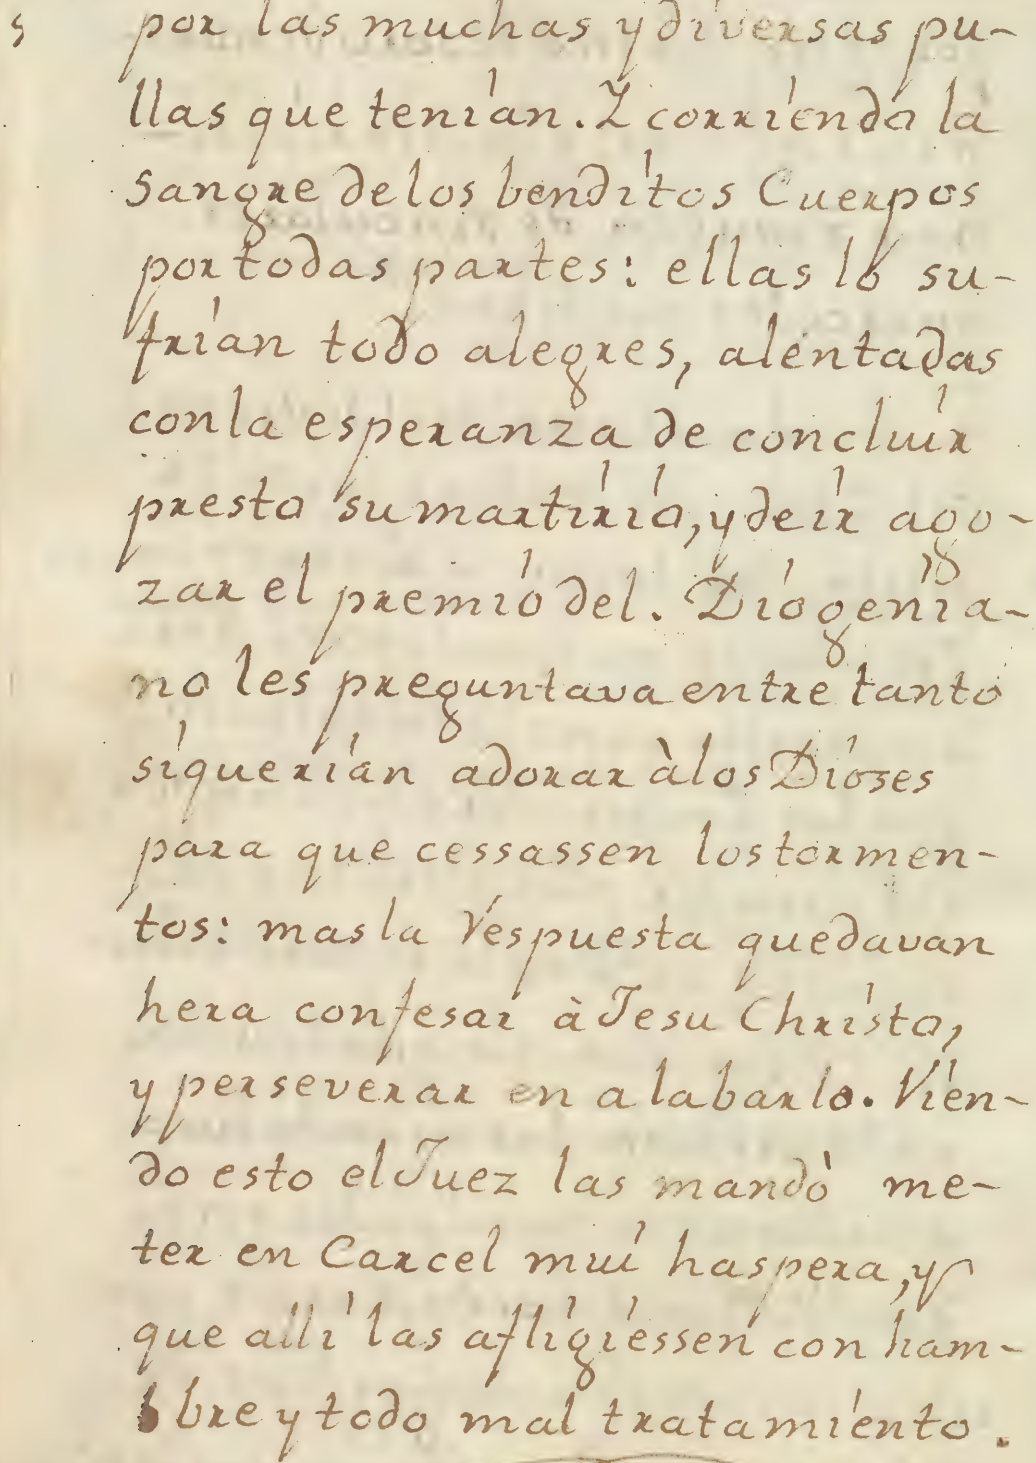 por las muchas y diversas pu-
llas que tenían. Y corriendo la
Sangre delos benditos Cuerpos
por todas partes: ellas lo su-
frían todo alegres, alentadas
conla esperanza de concluír
presto su martirio, y deir ago-
zar el premio del. Diogenia-
no les preguntava entre tanto
siquerían adorar àlos Dioses
para que cessassen los tormen-
tos: mas la respuesta quedavan
hera confesar à Jesu Christo,
y perseverar en alabarlo. Vien-
do esto el Juez las mandò me-
ter en Carcel muí haspera, y
que allí las afligiessen con ham-
bre y todo mal tratamiento.